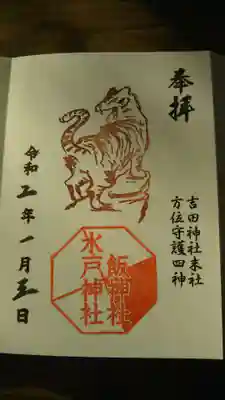 奉拝
吉田神社末社
方位守護四神
飯神社
水戸神社
令和二年一月三日